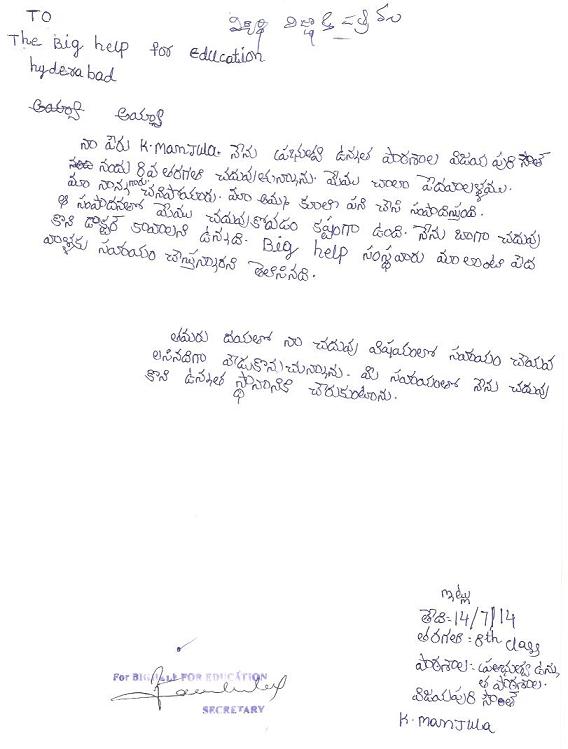 TO
విద్యార్థి విజ్ఞాప్తి పత్రము
The Big help for education
hyderabad
అయ్యా అయ్యా
నా పేరు K. Manjula. నేను ప్రభుత్వ ఉన్నత పాఠశాల విజయ పురి సౌత్
నందు 8వ తరగతి చదువుతున్నాను. మేము చాలా పేదవాళ్ళము.
మా నాన్నగారు చనిపోయారు. మా అమ్మ కూలీ పని చేసి సంపాదిస్తుంది.
ఆ సంపాదనతో మేము చదువుకోవడం కష్టంగా ఉంది. నేను బాగా చదువు
కొని డాక్టర్ కావాలని ఉన్నది. Big help సంస్థవారు మాలాంటి పేద
వాళ్ళకు సహాయం చేస్తున్నారని తెలిసినది.
తమరు దయతో నా చదువు విషయంలో సహాయం చేయవ
లసినదిగా వేడుకొనుచున్నాను. మీ సహాయంతో నేను చదువు
కొని ఉన్నత స్థానానికి చేరుకుంటాను.
ఇట్లు
తేది:-14/7/14
తరగతి : 8th class
పాఠశాల: ప్రభుత్వ ఉన్న
త పాఠశాల.
విజయపురి సౌత్
K. Manjula
For BIG HELP FOR EDUCATION
SECRETARY